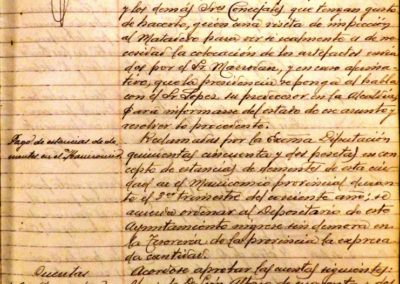 y los demás Sres Concejales que tengan gusto
de hacerlo, giren una visita de inspección
al Matadero para ver si realmente es de ne-
cesidad la colocación de los artefactos
dos por el Sr. y en caso afirma-
tivo, que la presidencia se ponga al habla
con el Sr. Lopez su predecesor en la Alcaldía,
para informarse del estado de ese asunto y
resolver lo procedente.
Pago de estancias de de-
mentes en el Manicomio
Reclamadas por la Excma Diputación
quinientas cincuenta y dos pesetas en con-
cepto de estancias de dementes de esta ciu-
dad en el Manicomio provincial duran-
te el 3er trimestre del corriente año; se
acuerda ordenar al Depositario de este
Ayuntamiento ingrese sin demora en
la Tesorería de la provincia la expresa-
da cantidad.
Cuentas
Acordóse aprobar las cuentas siguientes: